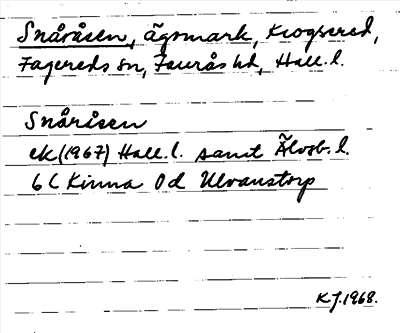 Snåråsen, ägomark, Krogsered,
Fagereds sn, Faurås hd, Hall. l.
Snåråsen
ek (1967) Hall. l. samt Älvsb. l.
6 C Kinna 0 d Ulvanstorp
K J. 1968.